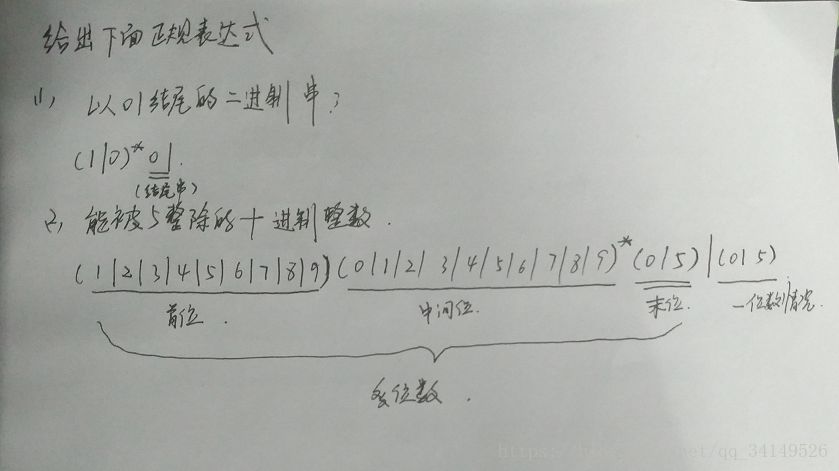 给出下面正规表达式
(1) 以01结尾的二进制串;
(1|0)*01.
(结尾串)
(2) 能被5整除的十进制整数.
(1|2|3|4|5|6|7|8|9)(0|1|2|3|4|5|6|7|8|9)*(0|5)|(0|5)
首位. 中间位. 末位. 一位数情况.
多位数.
qq_34149526